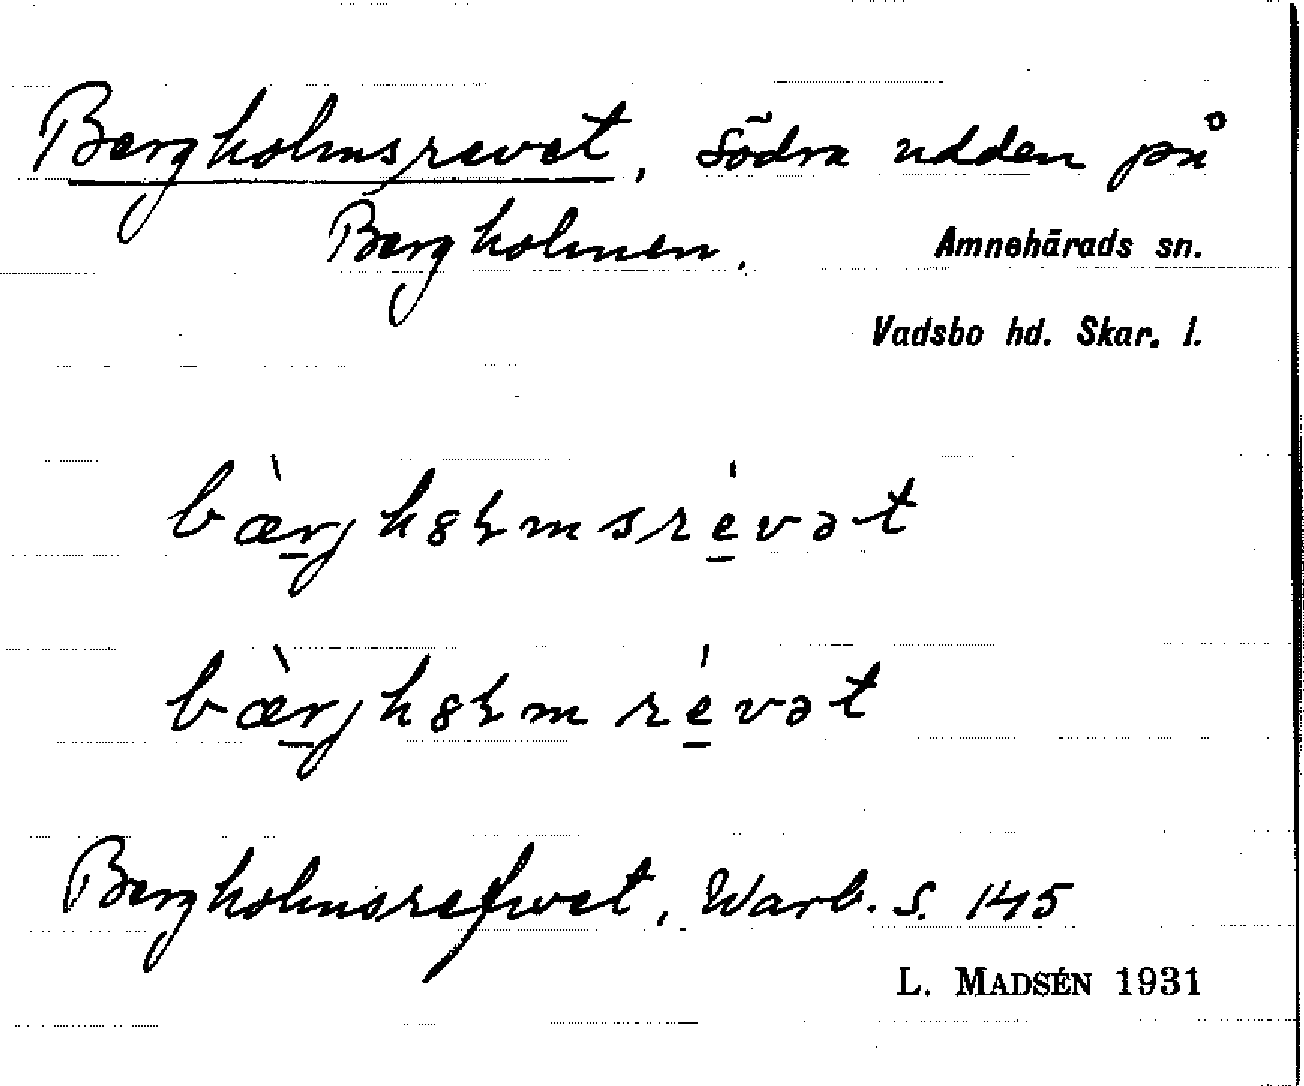 Bergholmsrevet, södra udden på
Bergholmen.
Amnehärads sn.
Vadsbo hd. Skar. l.
bæ̀rjhȣɽmsrévət
bæ̀rjhȣɽmrévət
Bergholmsrefwet, Warb. S. 145
L. MADSÉN 1931